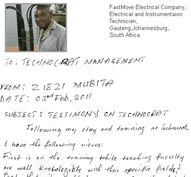 FastMove Electrical Company,
Electrical and Instrumentaion
Technician,
Gauteng,Johannesburg,
South Africa.
TO: TECHNOCRAT MANAGEMENT
FROM: ZIEZI MUBITA
DATE: 02nd Feb, 2011
SUBJECT: TESTIMONY ON TECHNOCRAT
Following my stay and training at Technocrat,
I have the following views:
First is on the training while teaching faculty
are well knowledgeable with their specific fields.